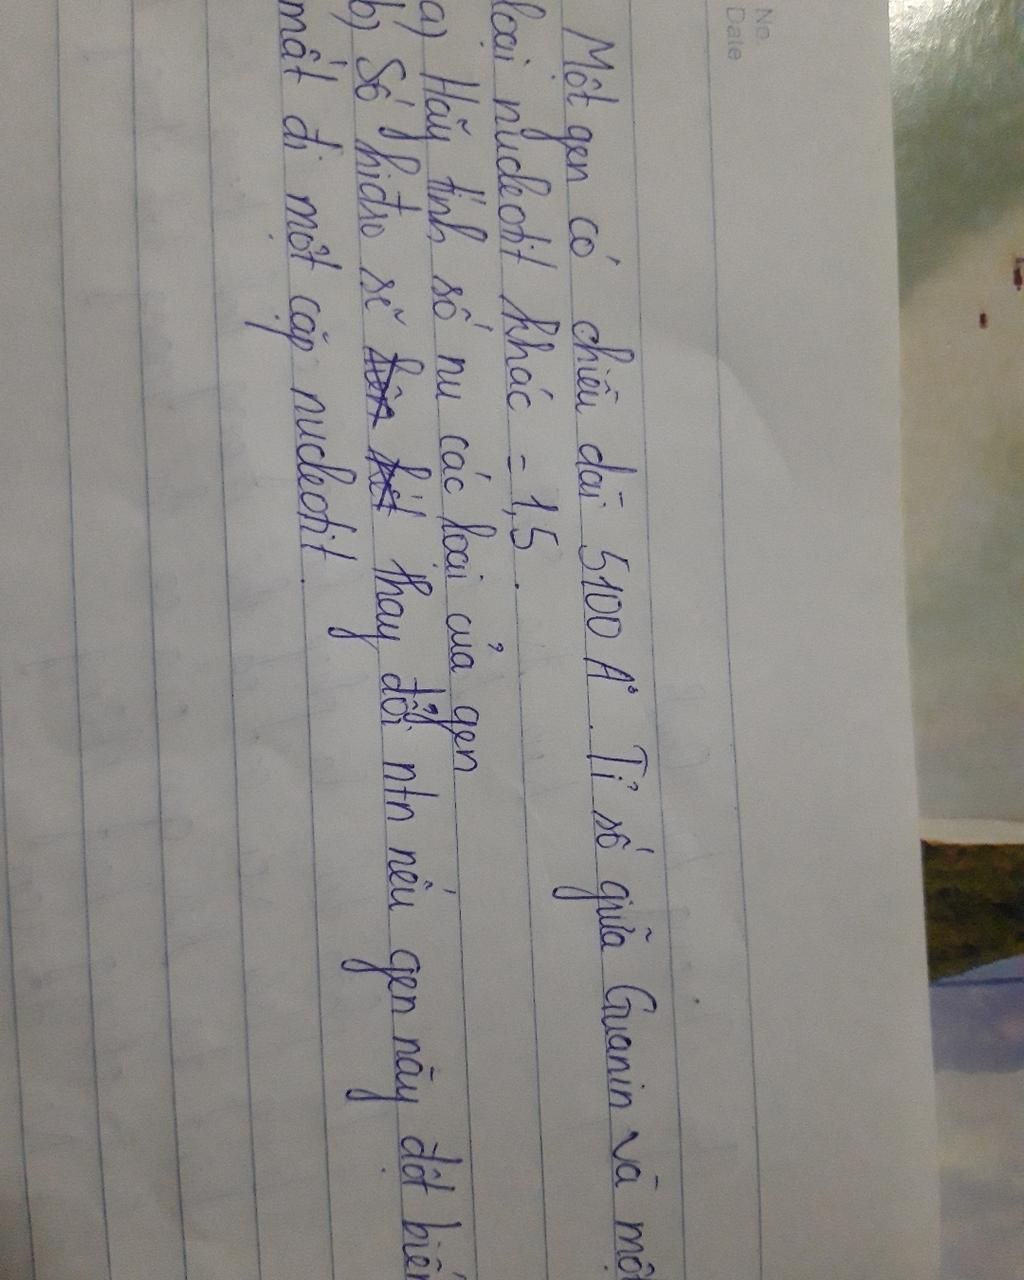 No.
Date
Một gen có chiều dài 5100 A°. Tỉ số giữa Guanin và một
loại nucleotit khác = 1,5.
a) Hãy tính số nu các loại của gen
b) Số hiđro sẽ thay đổi ntn nếu gen này đột biến
mất đi một cặp nucleotit.